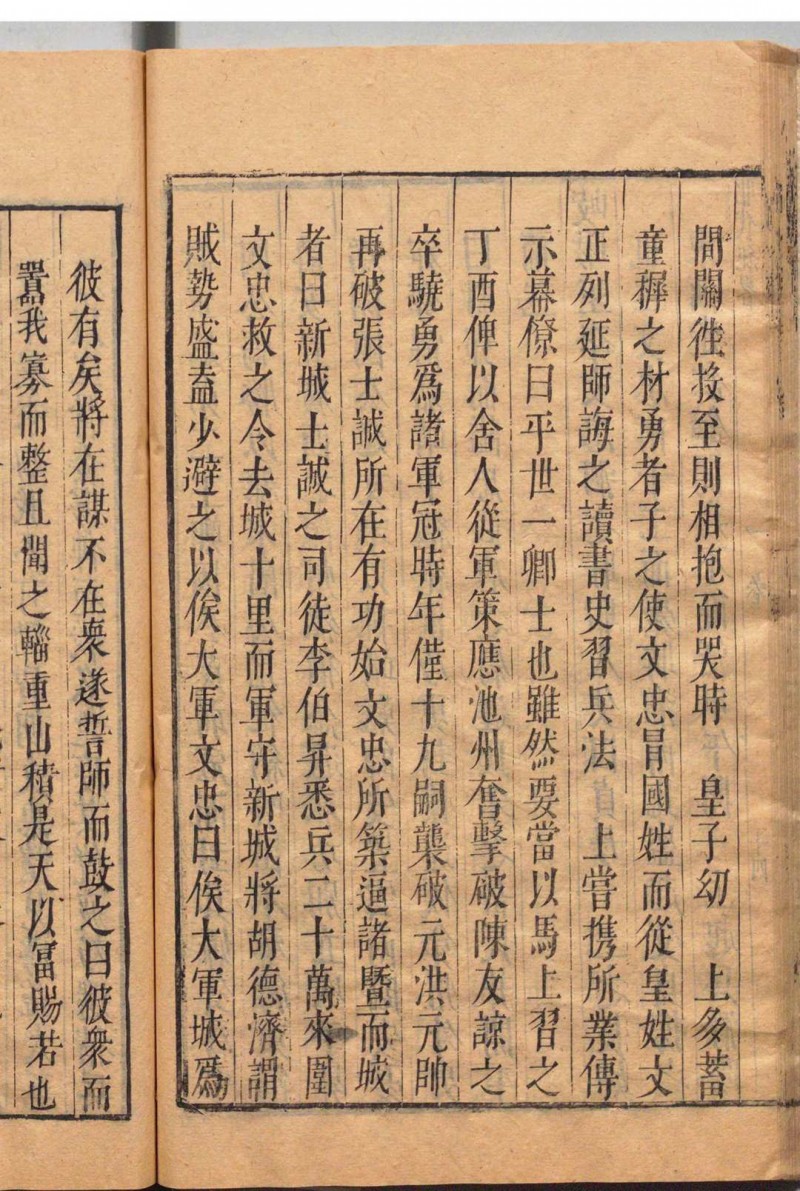 間關徃投至則相抱而哭時　皇子幼　上多蓄
童穉之材勇者子之使文忠冐國姓而從皇姓文
正列延師誨之讀書史習兵法　上嘗携所業傳
示幕僚曰平世一卿士也雖然要當以馬上習之
丁酉俾以舍人從軍策應池州奮擊破陳友諒之
卒驍勇爲諸軍冠時年僅十九嗣襲破元洪元帥
再破張士誠所在有功始文忠所築逼諸暨而城
者曰新城士誠之司徒李伯昇悉兵二十萬來圍
文忠救之令去城十里而軍守新城將胡德濟謂
賊勢盛盍少避之以俟大軍文忠曰俟大軍城爲
彼有矣將在謀不在衆遂誓師而鼓之曰彼衆而
囂我寡而整且聞之輜重山積是天以冨賜若也